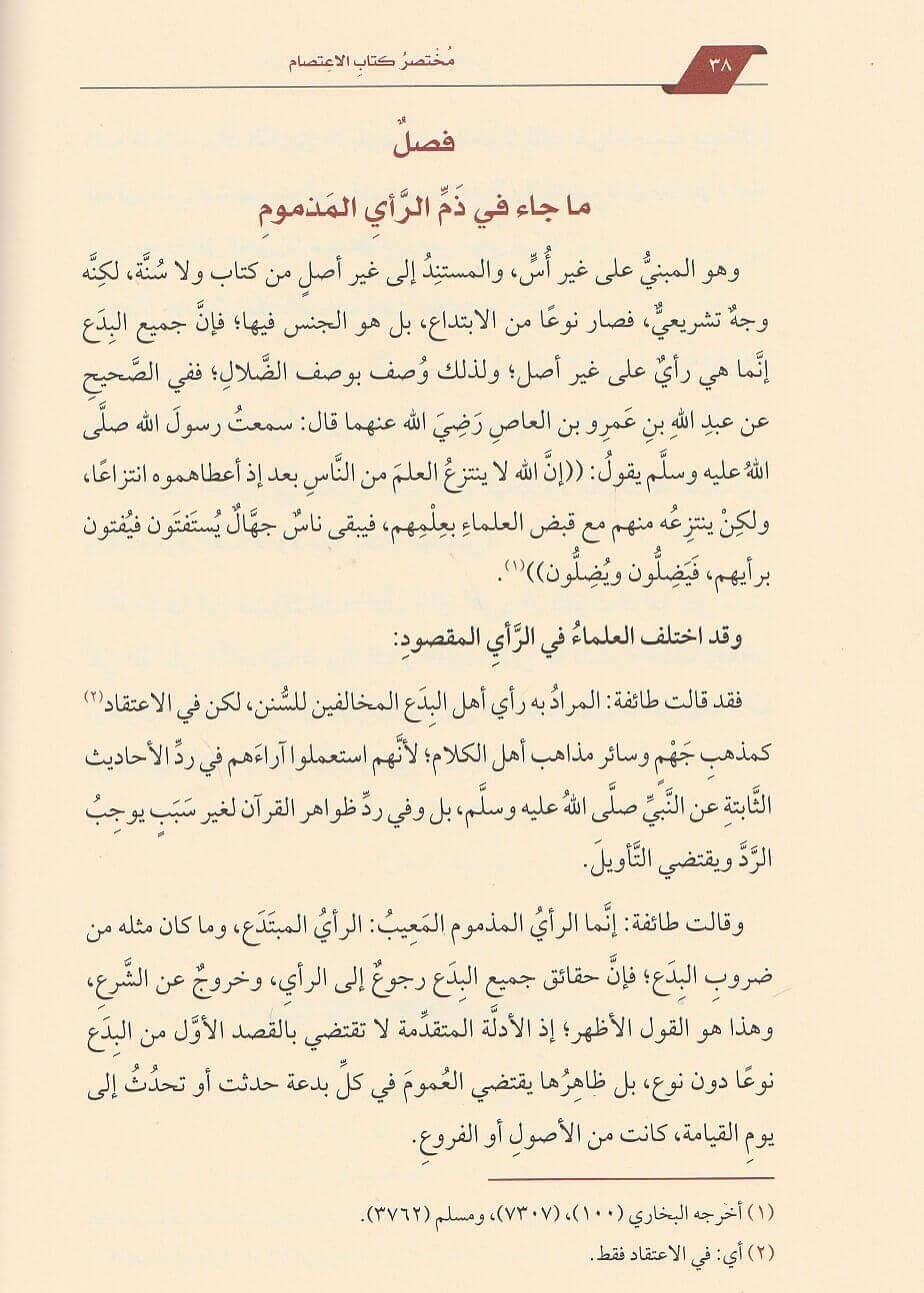 ٣٨
مُخْتصرُ كتابِ الاعِتصام
فصلٌ
ما جاء في ذَمِّ الرَّأيِ المَذمومِ
وهو المبنيُّ على غير أُسٍّ، والمستنِدُ إلى غير أصلٍ من كتاب ولا سُنَّة، لكِنَّه
وجهٌ تشريعيٌّ، فصار نوعًا من الابتداع، بل هو الجنس فيها؛ فإنَّ جميع البِدَع
إنَّما هي رأيٌ على غير أصل؛ ولذلك وُصف بوصف الضَّلالِ؛ ففي الصَّحيحِ
عن عبدِ اللهِ بنِ عَمرِو بن العاصِ رَضِيَ الله عنهما قال: سمعتُ رسولَ الله صلَّى
اللهُ عليه وسلَّم يقولُ: ((إنَّ الله لا ينتزعُ العلمَ من النَّاسِ بعد إذ أعطاهموه انتزاعًا،
ولكِنْ ينتزِعُه منهم مع قبض العلماءِ بعِلْمِهم، فيبقى ناسٌ جهَّالٌ يُستَفتَون فيُفتون
برأيهم، فَيَضِلُّون ويُضِلُّون))(١).
وقد اختلف العلماءُ في الرَّأيِ المقصودِ:
فقد قالت طائفة: المرادُ به رأي أهل البِدَع المخالفين للسُّنن، لكن في الاعتقاد(٢)
كمذهبِ جَهْمٍ وسائر مذاهب أهل الكلام؛ لأنَّهم استعملوا آراءَهم في ردِّ الأحاديث
الثَّابتةِ عن النَّبيِّ صلَّى اللهُ عليه وسلَّم، بل وفي ردِّ ظواهر القرآن لغير سَبَبٍ يوجِبُ
الرَّدَّ ويقتضي التَّأويلَ.
وقالت طائفة: إنَّما الرأيُ المذموم المَعِيبُ: الرأيُ المبتَدَع، وما كان مثله من
ضروبِ البِدَع؛ فإنَّ حقائق جميع البِدَع رجوعٌ إلى الرأيِ، وخروجٌ عن الشَّرعِ،
وهذا هو القول الأظهر؛ إذ الأدلَّة المتقدِّمة لا تقتضي بالقصد الأوَّل من البِدَع
نوعًا دون نوع، بل ظاهِرُها يقتضي العُمومَ في كلِّ بدعة حدثت أو تحدُثُ إلى
يومِ القيامة، كانت من الأصولِ أو الفروعِ.
(١) أخرجه البخاري (١٠٠)، (٧٣٠٧)، ومسلم (٣٧٦٢).
(٢) أي: في الاعتقاد فقط.